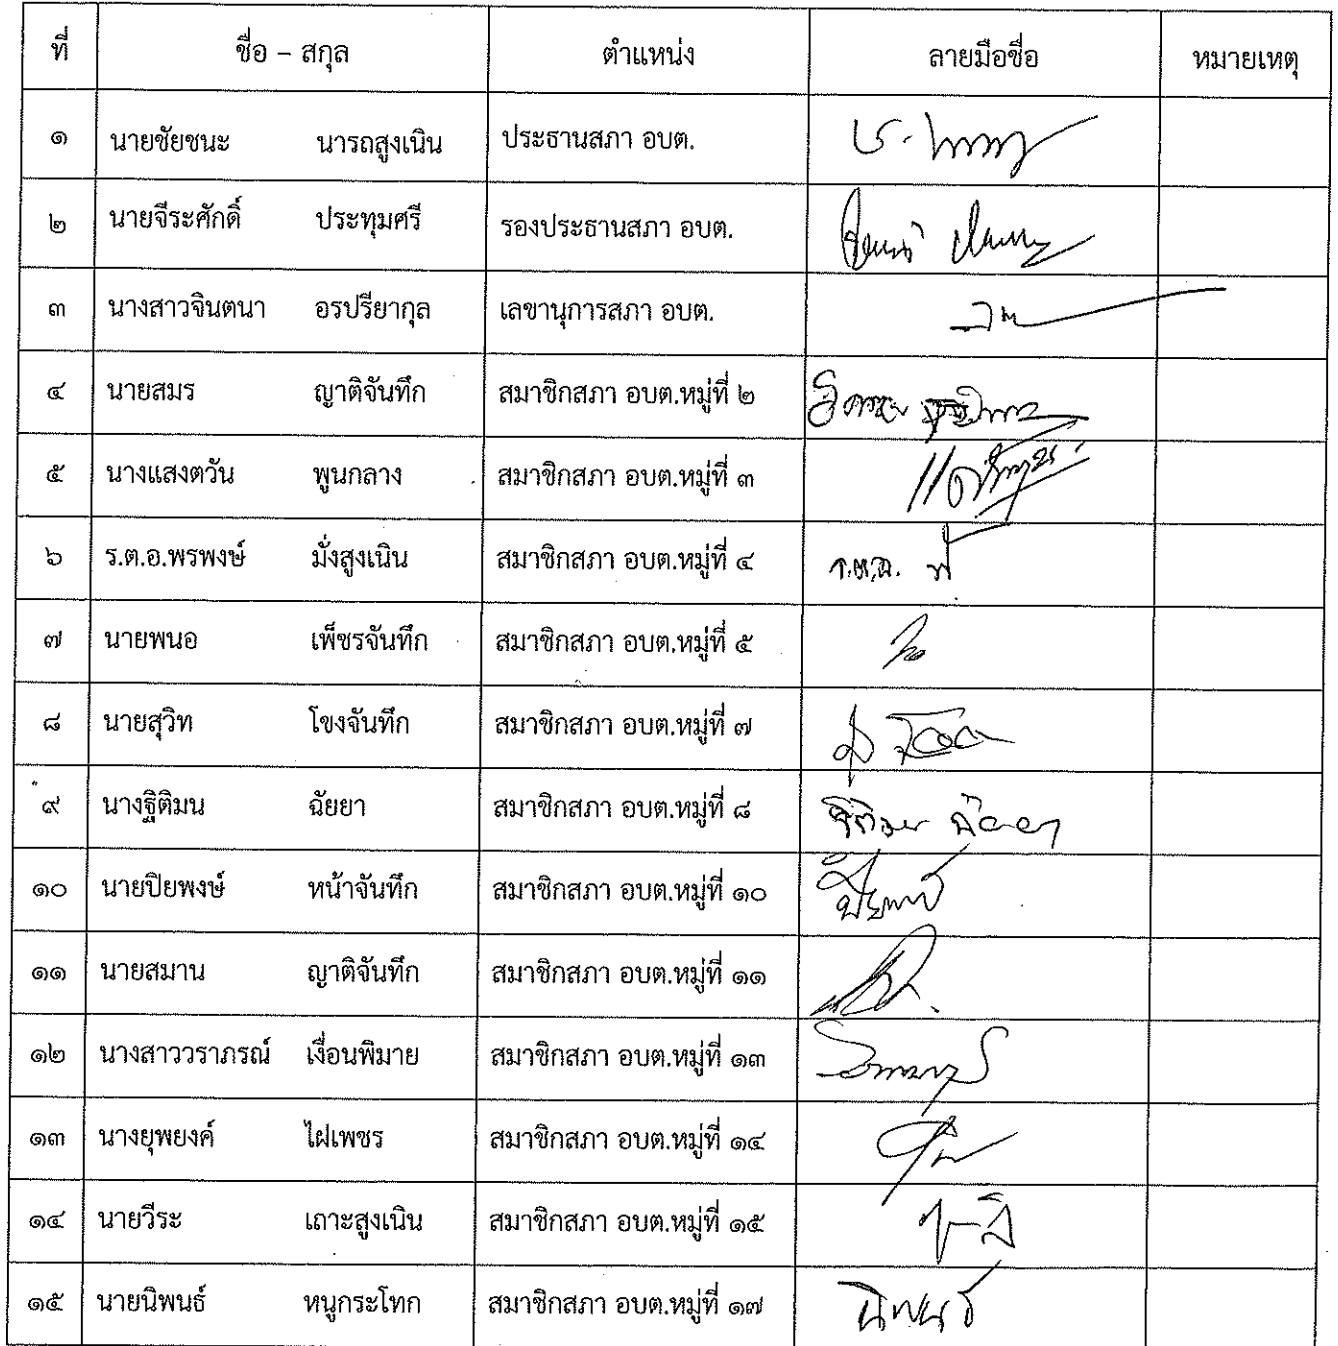 ที่ ชื่อ – สกุล ตำแหน่ง ลายมือชื่อ หมายเหตุ
๑ นายชัยชนะ นารถสูงเนิน ประธานสภา อบต.
๒ นายจีระศักดิ์ ประทุมศรี รองประธานสภา อบต.
๓ นางสาวจินตนา อรปรียากุล เลขานุการสภา อบต.
๔ นายสมร ญาติจันทึก สมาชิกสภา อบต.หมู่ที่ ๒
๕ นางแสงตวัน พูนกลาง สมาชิกสภา อบต.หมู่ที่ ๓
๖ ร.ต.อ.พรพงษ์ มั่งสูงเนิน สมาชิกสภา อบต.หมู่ที่ ๔ ร.ต.อ.
๗ นายพนอ เพ็ชรจันทึก สมาชิกสภา อบต.หมู่ที่ ๕
๘ นายสุวิท โขงจันทึก สมาชิกสภา อบต.หมู่ที่ ๗
๙ นางฐิติมน ฉัยยา สมาชิกสภา อบต.หมู่ที่ ๘ ฐิติมน ฉัยยา
๑๐ นายปิยพงษ์ หน้าจันทึก สมาชิกสภา อบต.หมู่ที่ ๑๐ ปิยพงษ์
๑๑ นายสมาน ญาติจันทึก สมาชิกสภา อบต.หมู่ที่ ๑๑
๑๒ นางสาววราภรณ์ เงื่อนพิมาย สมาชิกสภา อบต.หมู่ที่ ๑๓
๑๓ นางยุพยงค์ ไฝเพชร สมาชิกสภา อบต.หมู่ที่ ๑๔
๑๔ นายวีระ เถาะสูงเนิน สมาชิกสภา อบต.หมู่ที่ ๑๕
๑๕ นายนิพนธ์ หนูกระโทก สมาชิกสภา อบต.หมู่ที่ ๑๗ นิพนธ์